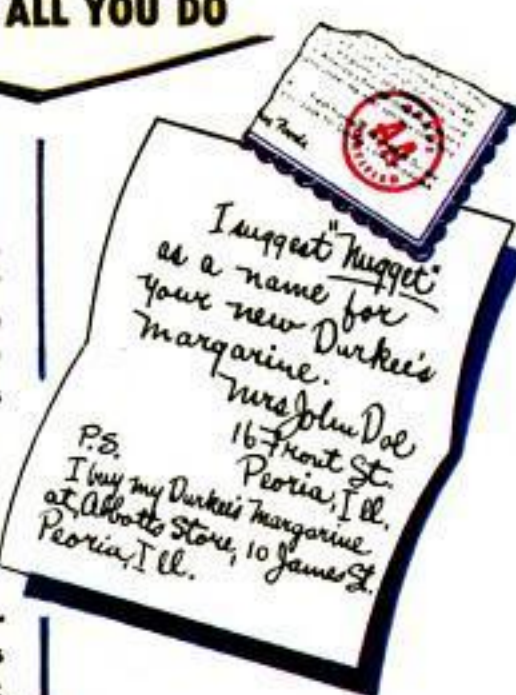 ALL YOU DO
AA
I suggest "Nugget"
as a name for
your new Durkee's
Margarine.
Mrs John Doe
16 Front St.
Peoria, Ill.
P.S.
I buy my Durkee's Margarine
at Abbotts Store, 10 James St.
Peoria, Ill.